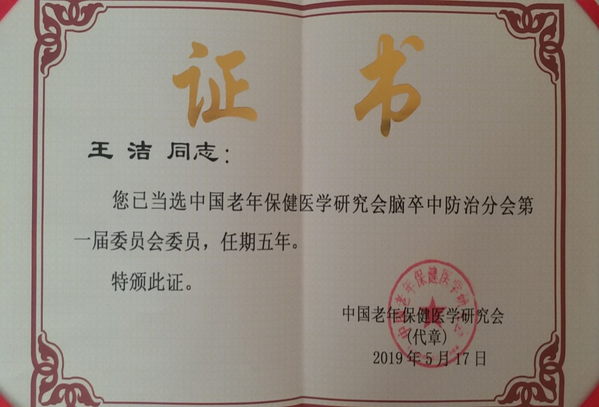 证 书
王 洁 同志：
您已当选中国老年保健医学研究会脑卒中防治分会第
一届委员会委员，任期五年。
特颁此证。
中国老年保健医学研究会
(代章)
2019年5月17日